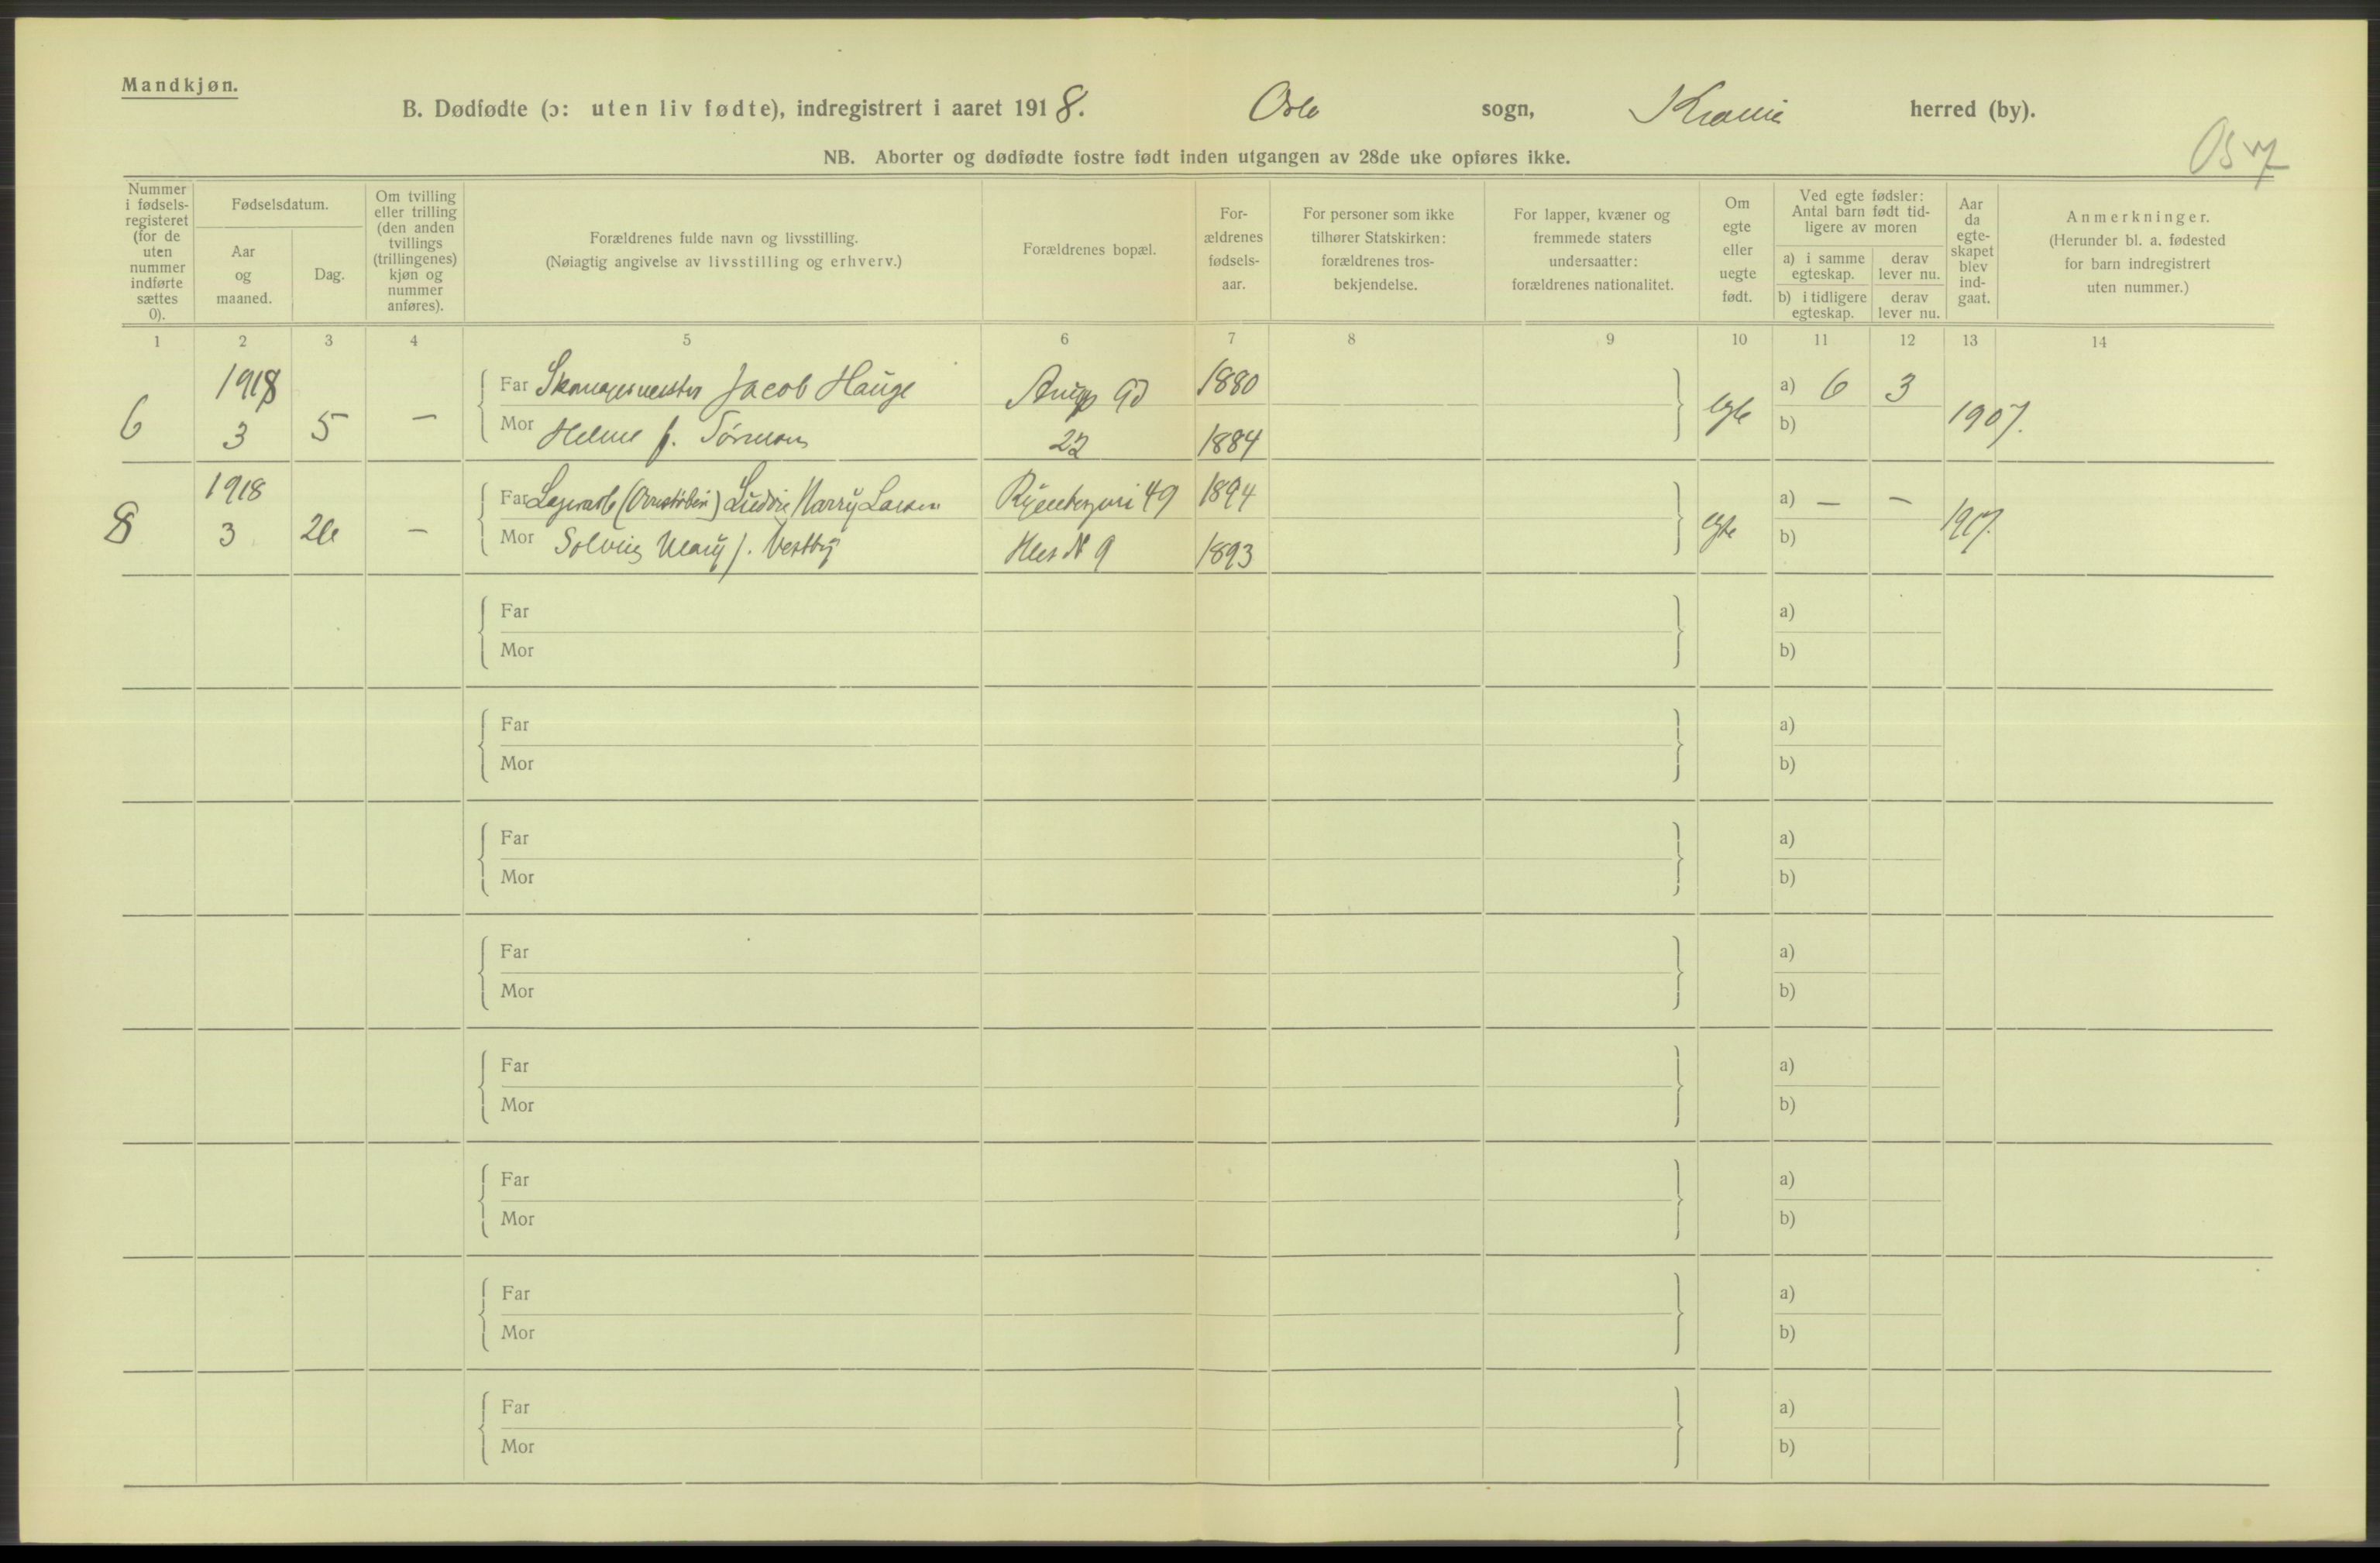 Mandkjøn.
B. Dødfødte (ɔ: uten liv fødte), indregistrert i aaret 1918. Oslo sogn, Kra herred (by).
NB. Aborter og dødfødte fostre født inden utgangen av 28de uke opføres ikke.
Nummer i fødsels-registeret (for de uten nummer indførte sættes 0).
Fødselsdatum.
Aar og maaned.
Dag.
Om tvilling eller trilling (den anden tvillings (trillingenes) kjøn og nummer anføres).
Forældrenes fulde navn og livsstilling.
(Nøiagtig angivelse av livsstilling og erhverv.)
Forældrenes bopæl.
For-ældrenes fødsels-aar.
For personer som ikke tilhører Statskirken: forældrenes tros-bekjendelse.
For lapper, kvæner og fremmede staters undersaatter: forældrenes nationalitet.
Om egte eller uegte født.
Ved egte fødsler: Antal barn født tid-ligere av moren
a) i samme egteskap.
derav lever nu.
b) i tidligere egteskap.
derav lever nu.
Aar da egte-skapet blev ind-gaat.
Anmerkninger.
(Herunder bl. a. fødested for barn indregistrert uten nummer.)
1 2 3 4 5 6 7 8 9 10 11 12 13 14
1918 Far Jacob Hauge 1880 a) 6 3
6 3 5 — egte 1907.
Mor Helene f. 22 1884 b)
1918 Far Harry Larsen 49 1894 a) — —
8 3 — egte 1917.
Mor Solveig Mary f. Vestby 9 1893 b)
Far a)
Mor b)
Far a)
Mor b)
Far a)
Mor b)
Far a)
Mor b)
Far a)
Mor b)
Far a)
Mor b)
Far a)
Mor b)
Far a)
Mor b)